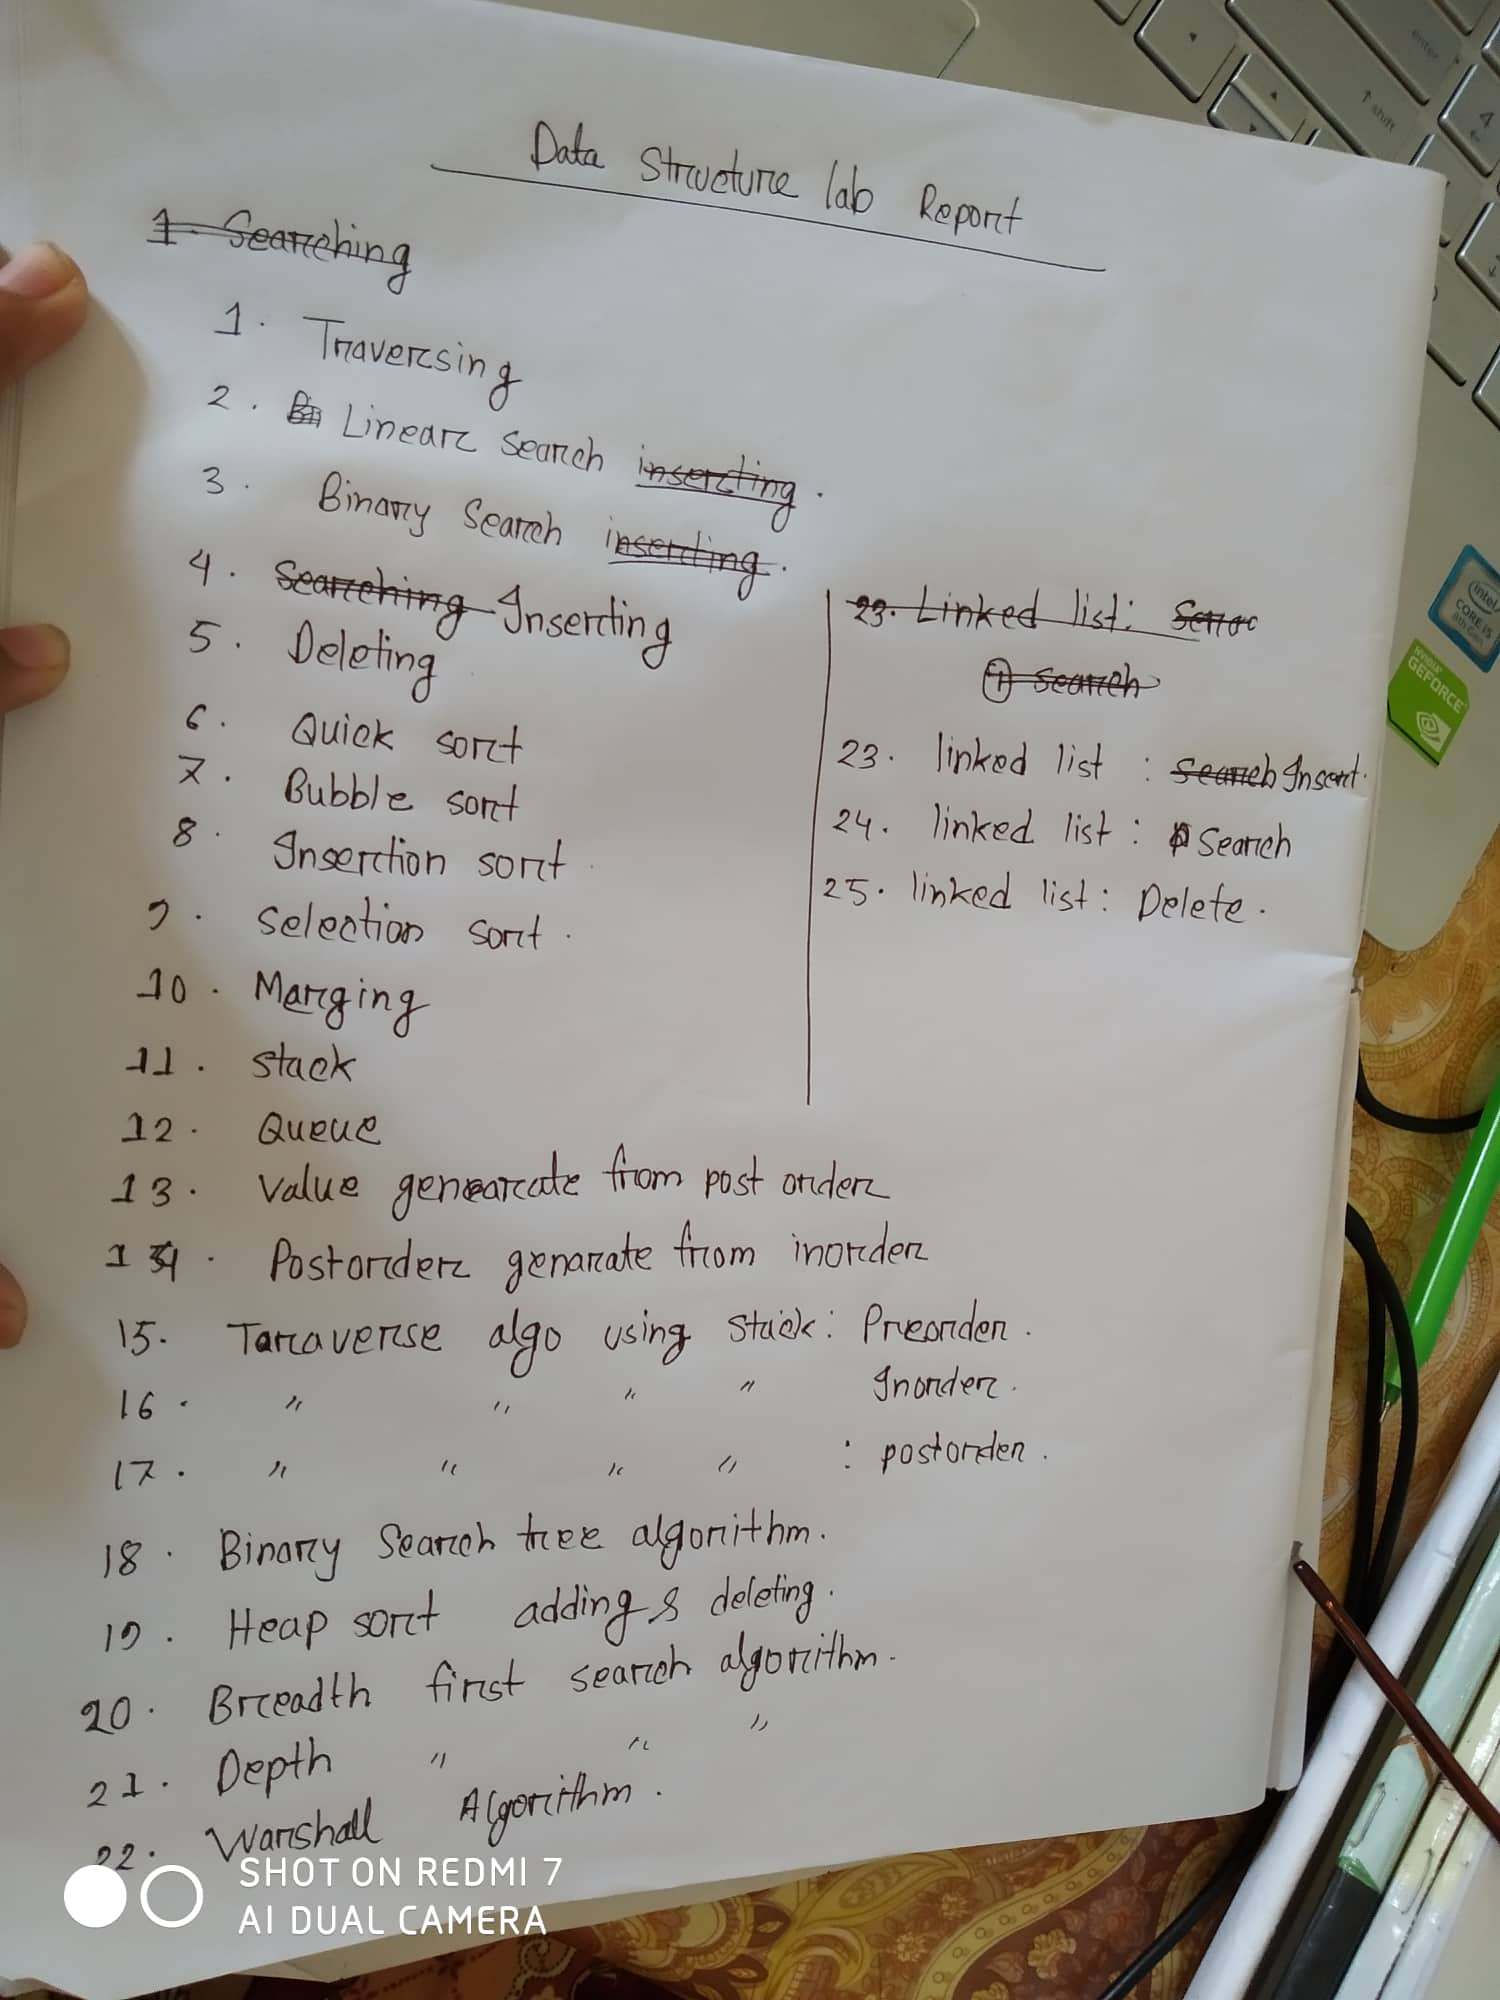 Data Structure lab Report
1. Searching
1. Traversing
2. Linear search inserting.
3. Binary Search inserting.
4. Searching Inserting
5. Deleting
6. Quick sort
7. Bubble sort
8. Insertion sort
9. Selection sort.
10. Marging
11. stack
12. Queue
13. Value genearate from post order
14. Postorder genarate from inorder
15. Taraverse algo using stack: Preorder.
16. " " " " Inorder.
17. " " " " : postorder.
18. Binary Search tree algorithm.
19. Heap sort adding & deleting.
20. Breadth first search algorithm.
21. Depth " " "
22. Warshall Algorithm.
23. Linked list:
① search
23. linked list : search Insert.
24. linked list : Search
25. linked list : Delete.
enter
shift
intel
CORE i5
8th Gen
NVIDIA
GEFORCE
SHOT ON REDMI 7
AI DUAL CAMERA